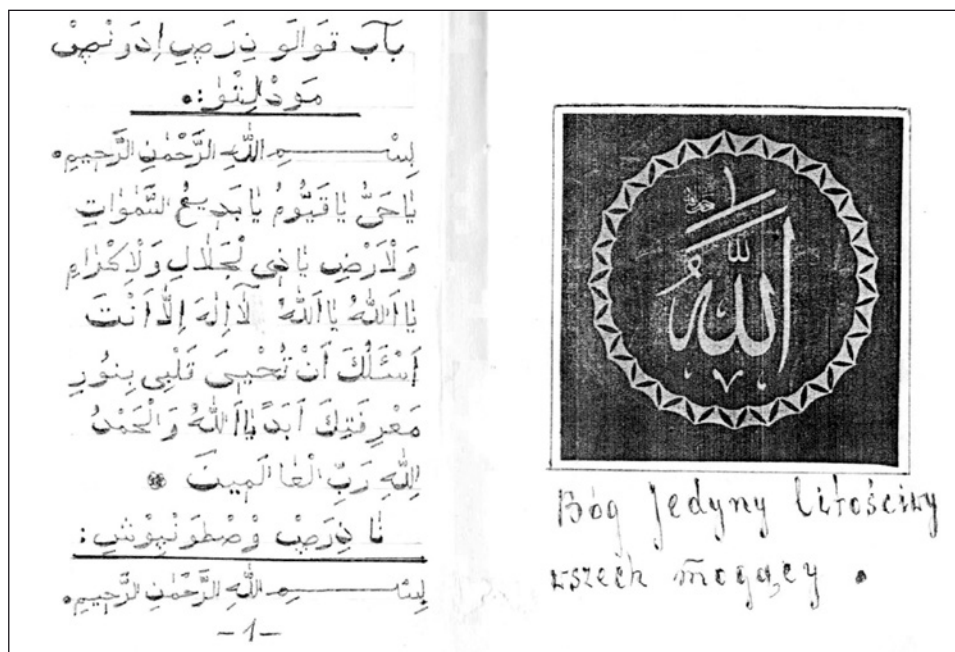 بِسْــــــمِ اللّٰهِ الرَّحْمٰنِ الرَّحِيمِ.
يَا حَيُّ يَا قَيُّومُ يَا بَدِيعُ السَّمٰوَاتِ
وَلْاَرْضِ يَا ذِي لْجَلَالِ وَلْاِكْرَامِ
يَا اَللّٰهُ يَا اَللّٰهُ لَآ اِلٰهَ اِلَّا اَنْتَ
اَسْئَلُكَ اَنْ تُحْيِىَ قَلْبِى بِنُورِ
مَعْرِفَتِكَ اَبَدً يَا اَللّٰهُ وَالْحَمْدُ
لِلّٰهِ رَبِّ الْعَالَمِينَ
بِسْــــــمِ اللّٰهِ الرَّحْمٰنِ الرَّحِيمِ.
-1-
اللّٰه
Bóg Jedyny litościwy
wszech mogący .